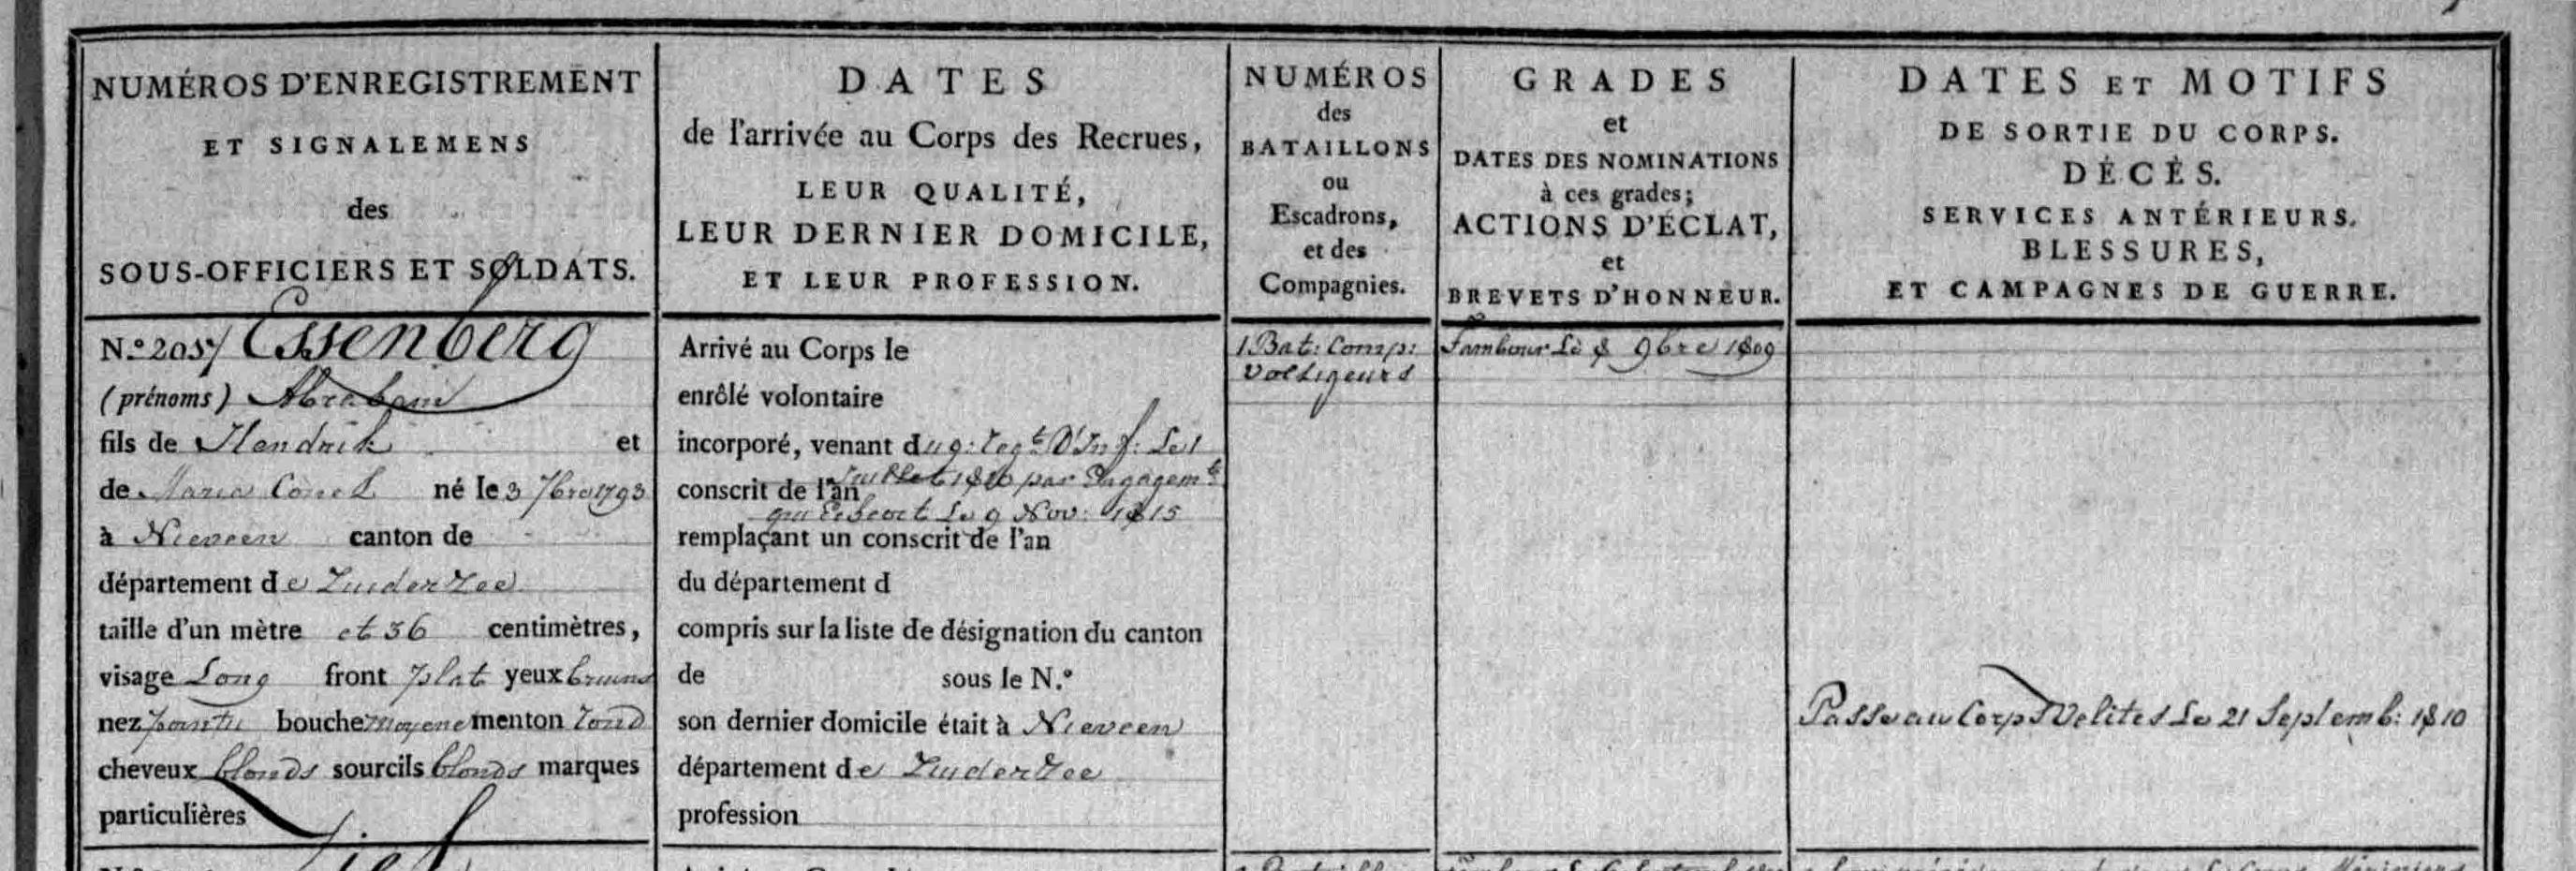 NUMÉROS D'ENREGISTREMENT
ET SIGNALEMENS
des
SOUS-OFFICIERS ET SOLDATS.
DATES
de l'arrivée au Corps des Recrues,
LEUR QUALITÉ,
LEUR DERNIER DOMICILE,
ET LEUR PROFESSION.
NUMÉROS
des
BATAILLONS
ou
Escadrons,
et des
Compagnies.
GRADES
et
DATES DES NOMINATIONS
à ces grades;
ACTIONS D'ÉCLAT,
et
BREVETS D'HONNEUR.
DATES ET MOTIFS
DE SORTIE DU CORPS.
DÉCÈS.
SERVICES ANTÉRIEURS.
BLESSURES,
ET CAMPAGNES DE GUERRE.
N.º 2057 Essenberg
(prénoms) Abraham
fils de Hendrik et
de Maria né le 3 7bre 1793
à Nieveen canton de
département de Zuider Zee
taille d'un mètre et 56 centimètres,
visage Long front plat yeux bruns
nez pointu bouche moyene menton rond
cheveux blonds sourcils blonds marques
particulières
Arrivé au Corps le
enrôlé volontaire
incorporé, venant du 9: regt. D'Inf: Le 1
Juillet 1810 par Engagemt.
conscrit de l'an
qui Echeoit Le 9 Nov: 1815
remplaçant un conscrit de l'an
du département d
compris sur la liste de désignation du canton
de sous le N.º
son dernier domicile était à Nieveen
département de Zuider Zee
profession
1 Bat: Comp:
Voltigeurs
Tambour Le 8 9bre 1809
Passe au Corps Velites Le 21 Septemb: 1810